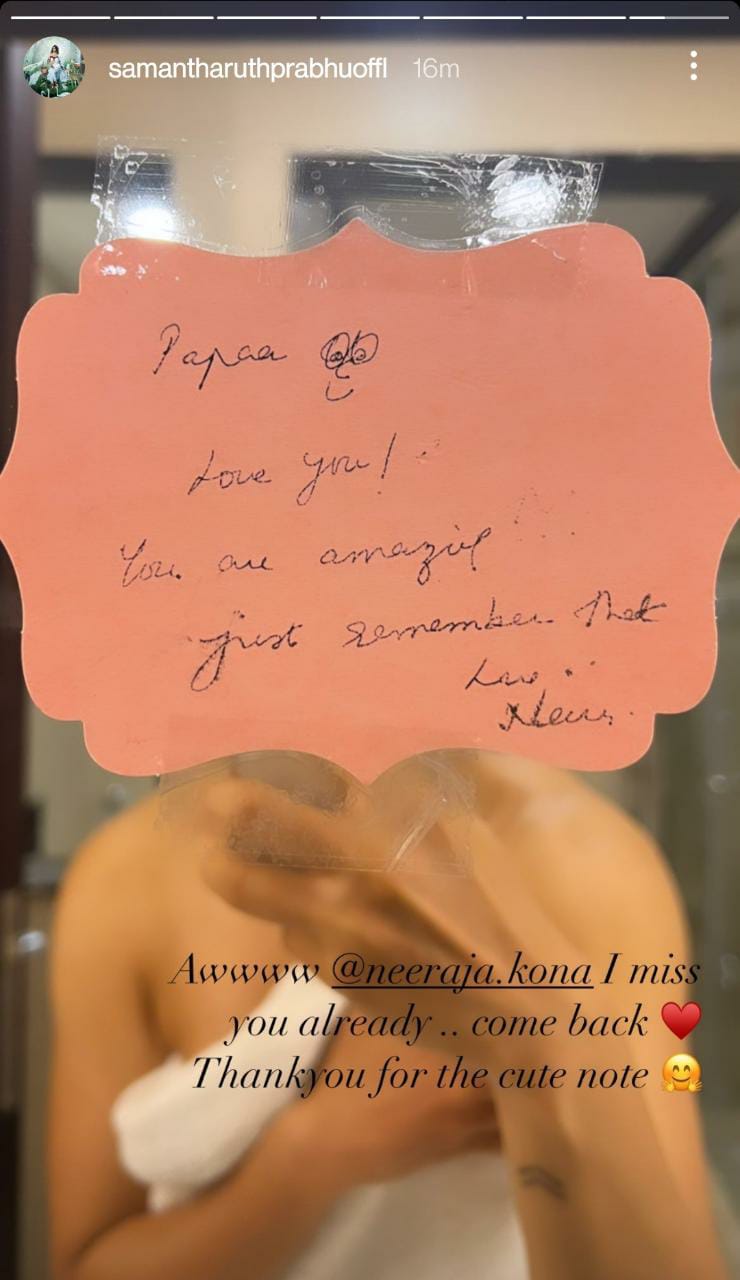 samantharuthprabhuoffl 16m
Papaa
Love you!
You are amazing
just remember that
Awwww @neeraja.kona I miss
you already .. come back ♥️
Thankyou for the cute note 🤗